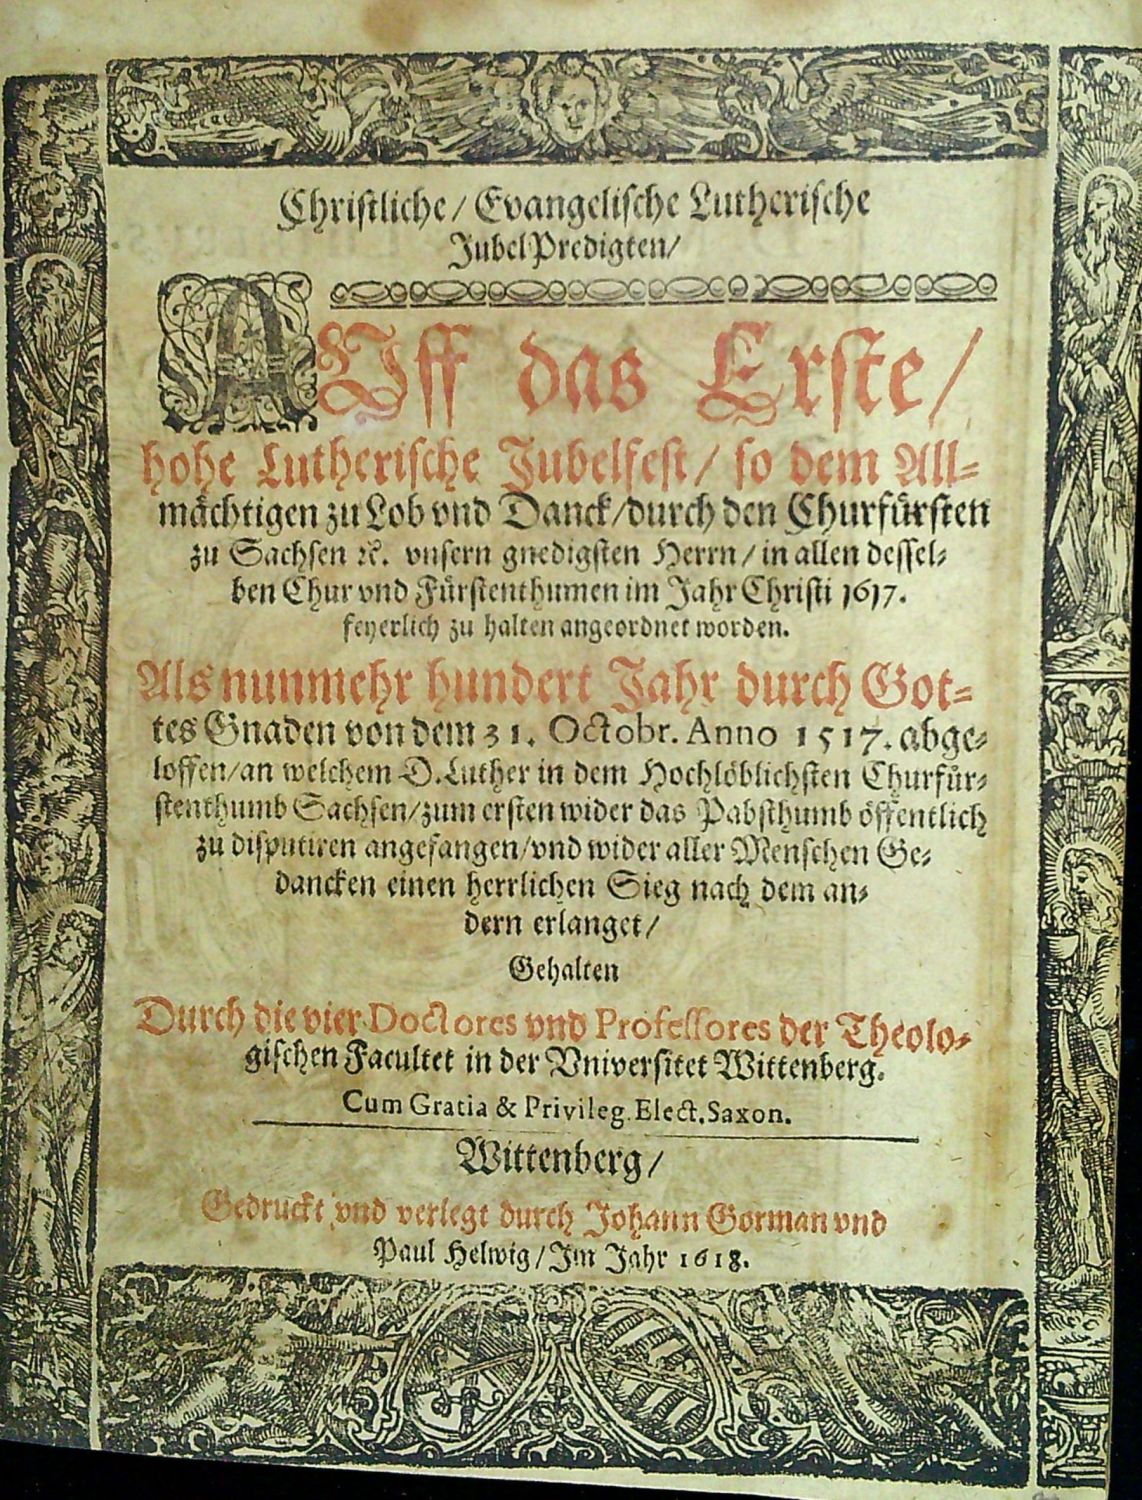 Christliche/ Evangelische Lutherische
JubelPredigten/
AUff das Erste/
hohe Lutherische Jubelfest/ so dem All-
mächtigen zu Lob vnd Danck/durch den Churfürsten
zu Sachsen ꝛc. vnsern gnedigsten Herrn/ in allen dessel-
ben Chur vnd Fürstenthumen im Jahr Christi 1617.
feyerlich zu halten angeordnet worden.
Als nunmehr hundert Jahr durch Got-
tes Gnaden von dem 31. Octobr. Anno 1517. abge-
loffen/an welchem D.Luther in dem Hochlöblichsten Churfür-
stenthumb Sachsen/zum ersten wider das Pabsthumb öffentlich
zu disputiren angefangen/vnd wider aller Menschen Ge-
dancken einen herrlichen Sieg nach dem an-
dern erlanget/
Gehalten
Durch die vier Doctores vnd Professores der Theolo-
gischen Facultet in der Vniversitet Wittenberg.
Cum Gratia & Privileg. Elect. Saxon.
Wittenberg/
Gedruckt vnd verlegt durch Johann Gorman vnd
Paul Helwig/Im Jahr 1618.